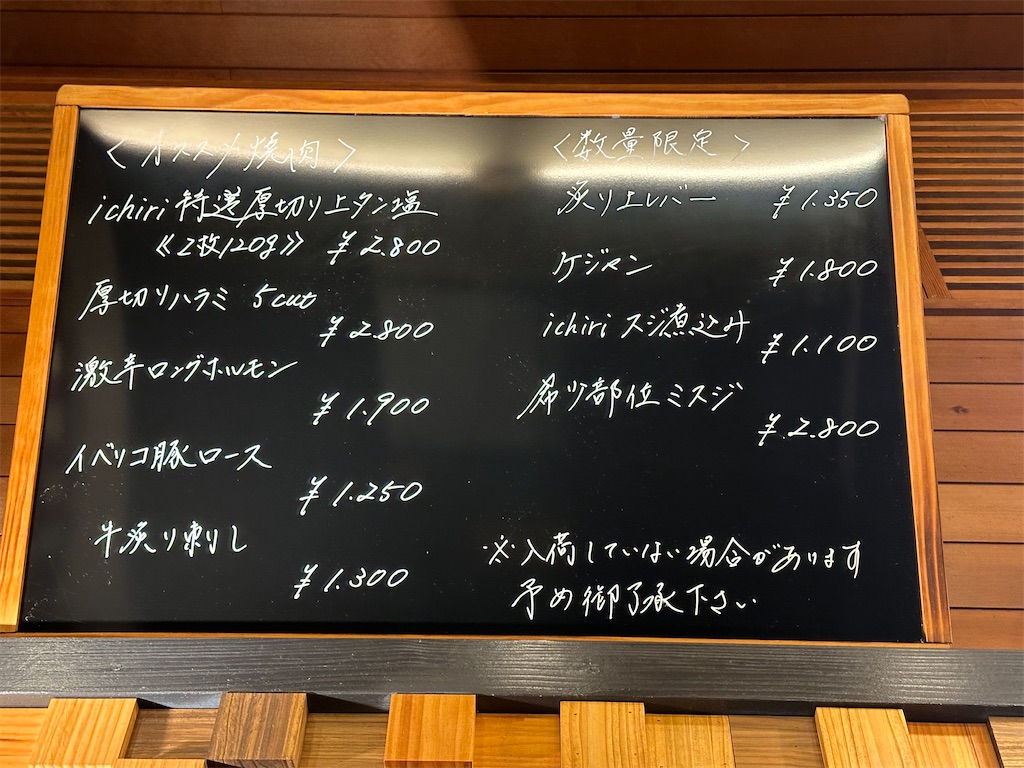 <オススメ焼肉>
ichiri 特選厚切り上タン塩
《2枚120g》 ¥2.800
厚切りハラミ 5cut
¥2.800
激辛ロングホルモン
¥1.900
イベリコ豚ロース
¥1.250
牛炙り刺し
¥1.300
<数量限定>
炙り上レバー ¥1.350
ケジャン ¥1.800
ichiri スジ煮込み ¥1.100
希少部位ミスジ
¥2.800
※入荷していない場合があります
予め御了承下さい